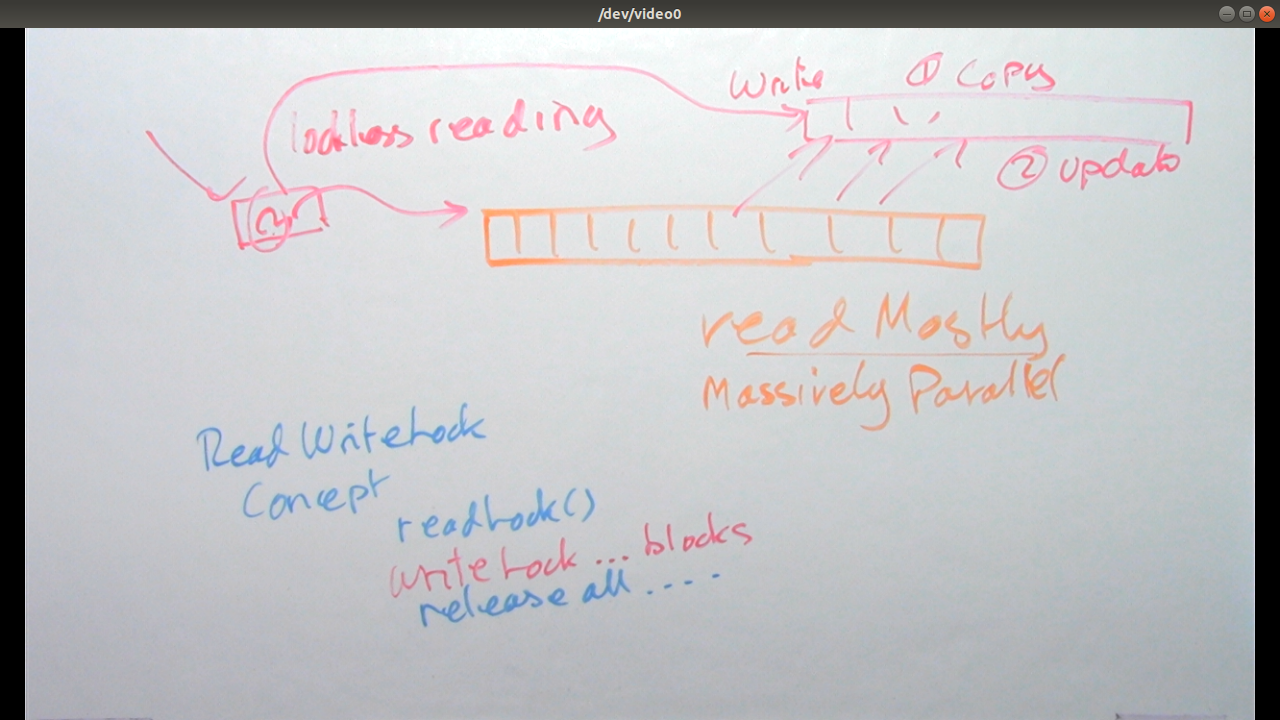 /dev/video0
Write ① Copy
lockless reading
② update
read Mostly
Massively Parallel
Read WriteLock
Concept
readLock()
writeLock ... blocks
release all ....